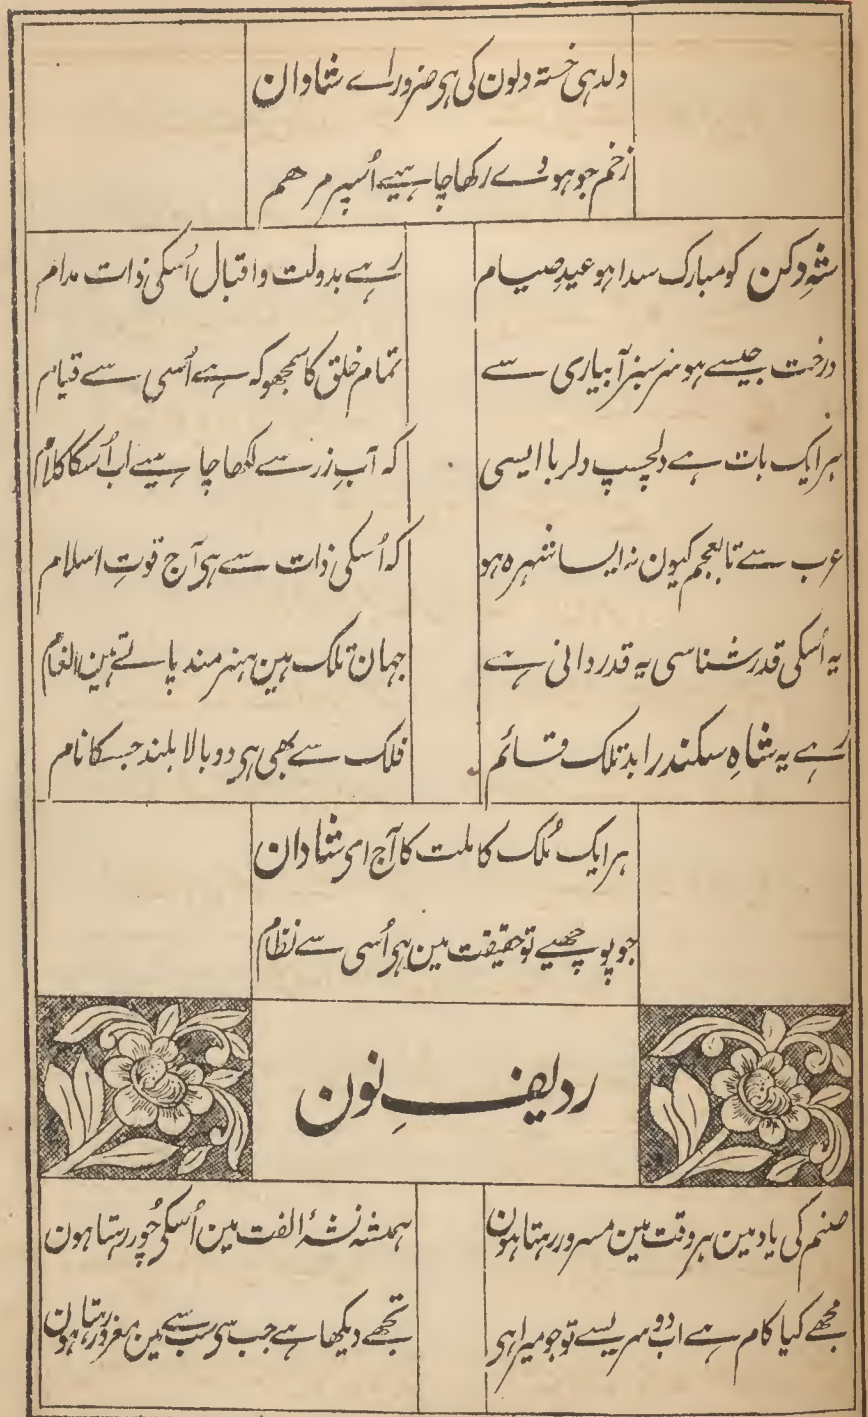 دلدہی خستہ دلون کی ہی ضرور اے شادان
زخم جو ہووے رکھا چاہیے اُسپر مرهم
شہِ دکن کو مبارک سدا ہو عیدِ صیام
رہے بدولت و اقبال اُسکی ذات مدام
درخت جیسے ہو سرسبز آبیاری سے
تمام خلق کا سمجھو کہ ہے اُسی سے قیام
ہر ایک بات ہے دلچسپ دلربا ایسی
کہ آبِ زر سے لکھا چاہیے اب اُسکا کلام
عرب سے تا بعجم کیون نہ ایسا شہرہ ہو
کہ اُسکی ذات سے ہی آج قوتِ اسلام
یہ اُسکی قدر شناسی یہ قدردانی ہے
جہان تلک ہین ہنرمند پاتے ہین انعام
رہے یہ شاہِ سکندر ابد تلک قائم
فلک سے بھی ہی دوبالا بلند جسکا نام
ہر ایک مُلک کا ملت کا آج ای شادان
جو پوچھیے تو حقیقت مین ہی اُسی سے نظام
ردیفِ نون
صنم کی یاد مین ہر وقت مین مسرور رہتا ہون
ہمشہ نشۂ الفت مین اُسکی چُور رہتا ہون
مجھے کیا کام ہے اب دوسریسے تو جو میرا ہی
تجھے دیکھا ہے جب سی سب سے مین مغرور رہتا ہون